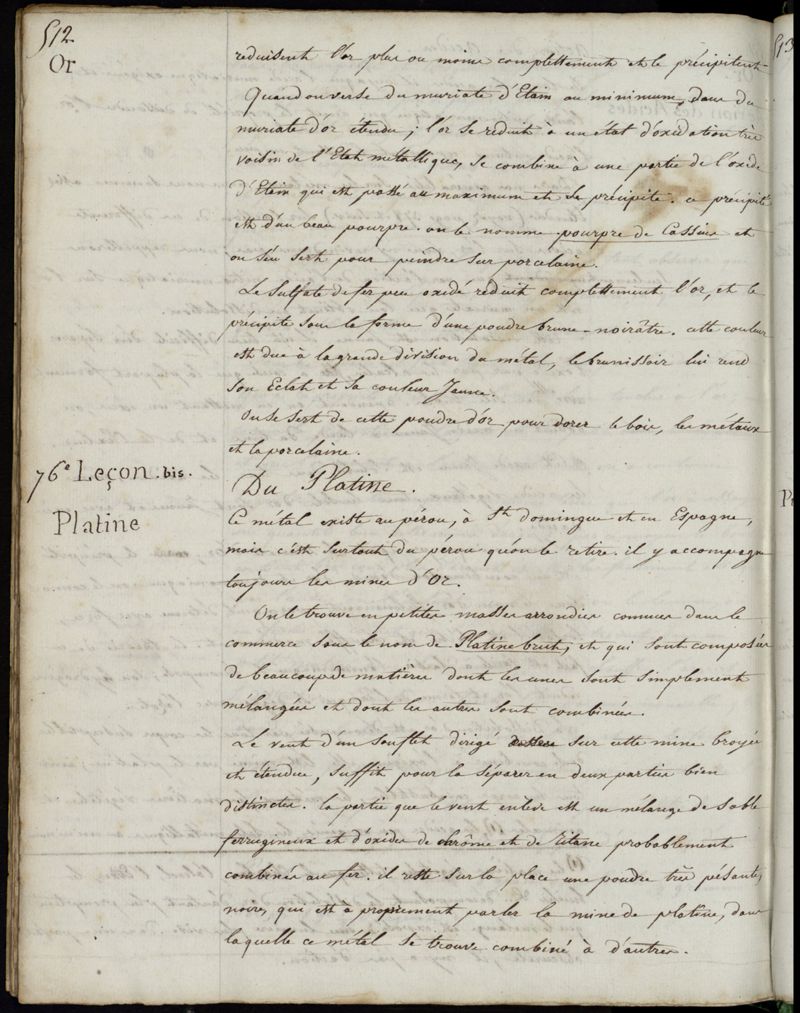 512
Or
reduisent l'or plus ou moins complettement et le précipitent
Quand on verse du muriate d'Etain au minimum, dans du
muriate d'or étendu ; l'or se reduit à un état d'oxidation très
voisin de l'Etat métallique, se combine à une partie de l'oxide
d'Etain qui est passé au maximum et se précipite. ce précipité
est d'un beau pourpre. on le nomme pourpre de Cassius et
on s'en sert pour peindre sur porcelaine.
Le Sulfate de fer peu oxidé réduit complettement l'or, et le
précipite sous la forme d'une poudre brune-noirâtre. cette couleur
est due à la grande division du métal, le brunissoir lui rend
son Eclat et sa couleur Jaune.
On se sert de cette poudre d'or pour dorer le bois, les métaux
et la porcelaine.
76e Leçon. bis.
Du Platine.
Platine
Ce métal existe au pérou, à St domingue et en Espagne,
mais c'est surtout du pérou qu'on le retire. il y accompagne
toujours les mines d'Or.
On le trouve en petites masses arrondies connues dans le
commerce sous le nom de Platine brut, et qui sont composées
de beaucoup de matières dont les unes sont simplement
mélangées et dont les autres sont combinées.
Le vent d'un soufflet dirigé sur cette mine broyée
et étendue, suffit pour la séparer en deux parties bien
distinctes. la partie que le vent enlève est un mélange de sable
ferrugineux et d'oxides de chrôme et de titane probablement
combinés au fer. il reste sur la place une poudre très pésante,
noire, qui est à proprement parler la mine de platine, dans
laquelle ce métal se trouve combiné à d'autres.
513